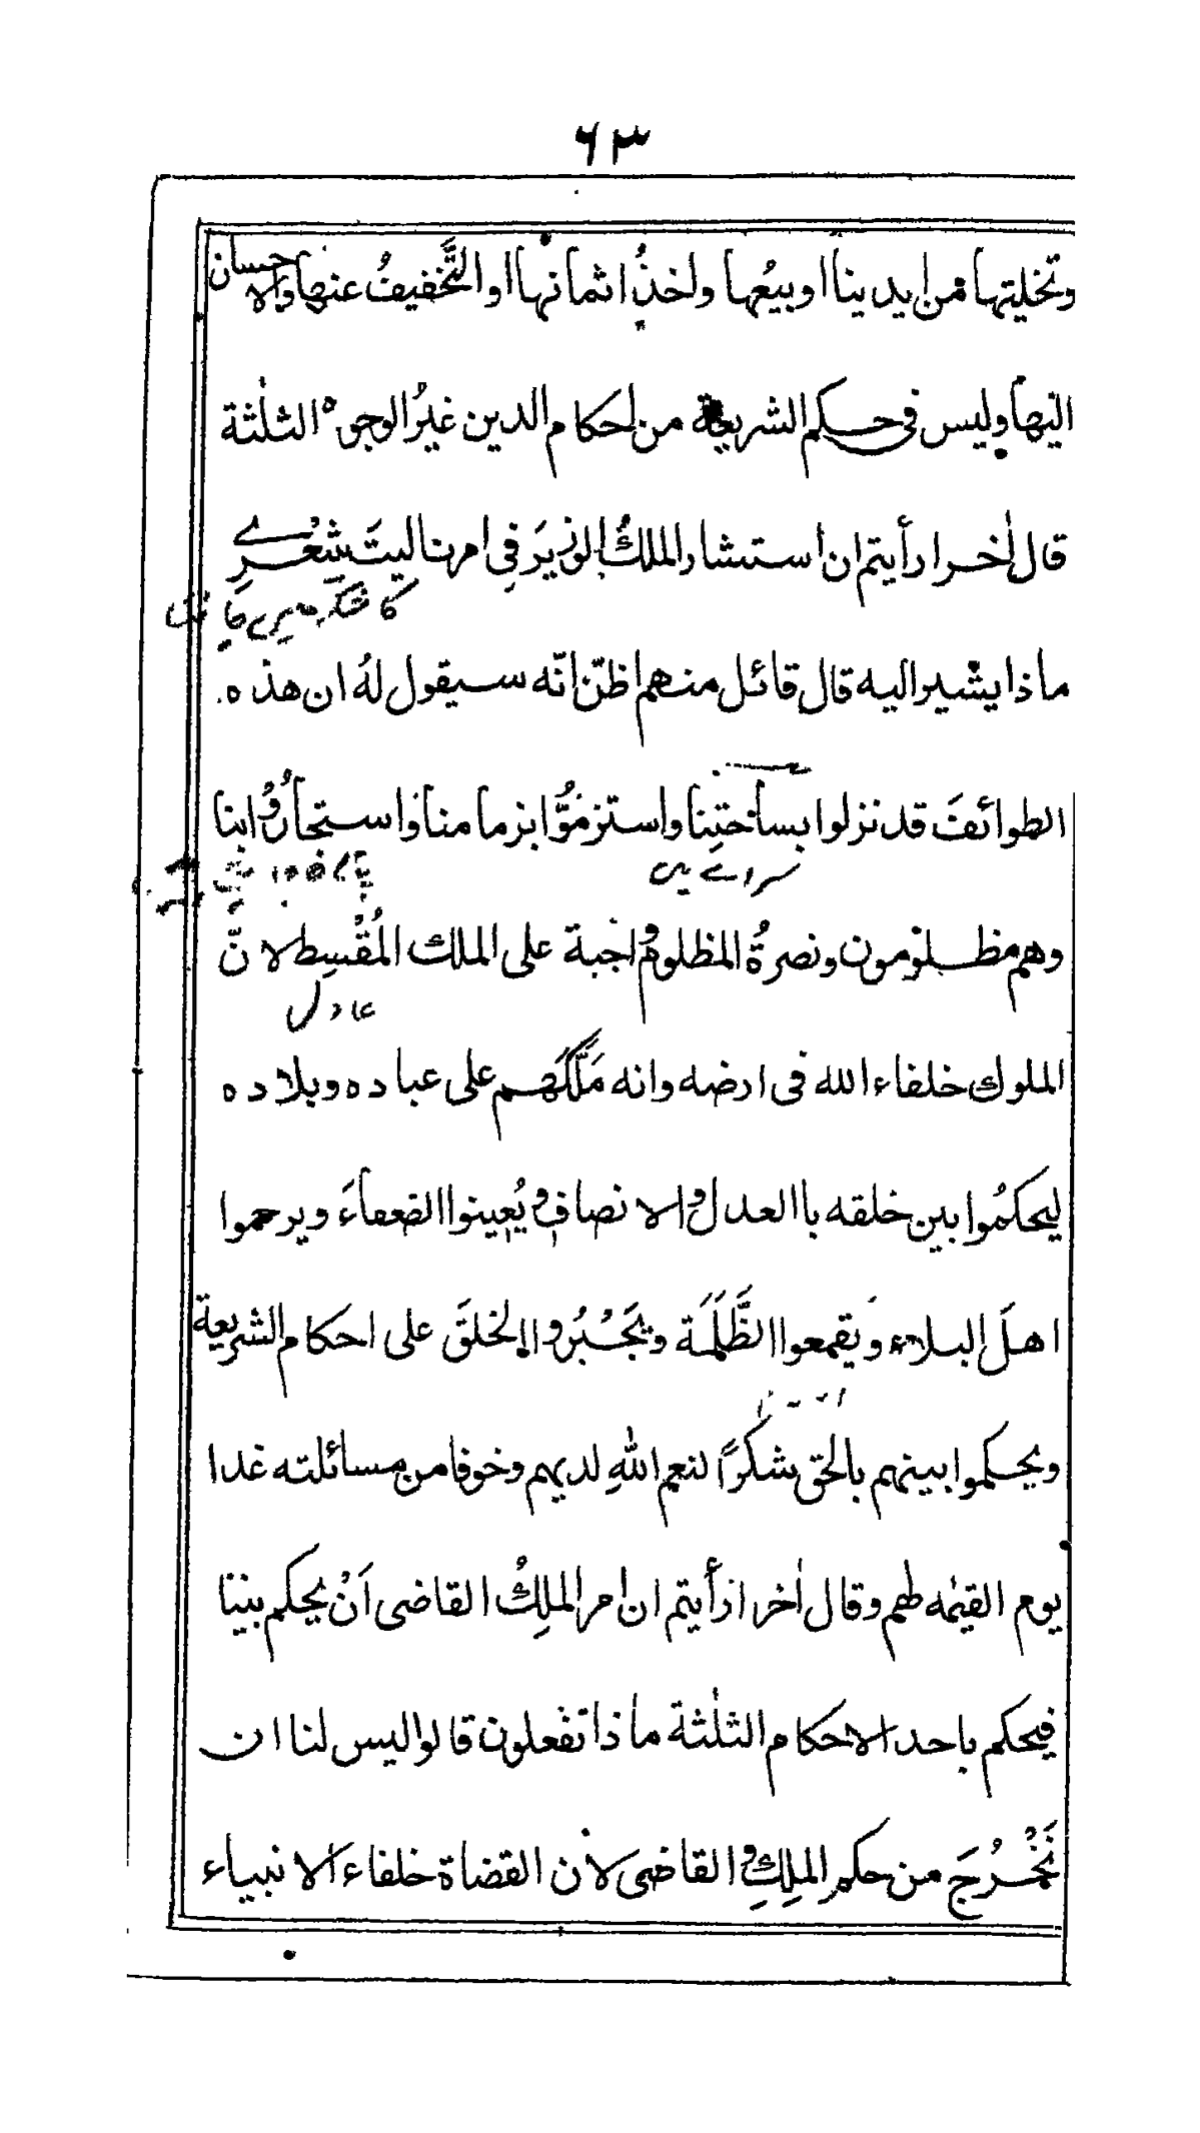 ٦٣
وتخليتها من ايدينا او بيعُها واخذُ اثمانها او التَّخفيفُ عنها والاحسان
اليها وليس فى حكم الشريعة من احكام الدين غيرُ الوجوه الثلٰثة
قال اٰخر ارأيتم ان استشار الملكُ الوزيرَ فِى امرنا ليتَ شِعْرِے
ماذا يشير اليه قال قائل منهم اظنّ انّه سيقول لهُ ان هذه
الطوائفَ قد نزلوا بساحتِنا واستزمُّوا بزمامنا واستجارُوا بنا
سرائے میں
وهم مظلومون ونصرةُ المظلوم واجبة على الملك المُقْسِط لانّ
عادل
الملوك خلفاء الله فى ارضه وانه مَلَّكَهم على عباده وبلاده
ليحكمُوا بين خلقه باالعدل والانصاف ويُعِينوا الضعفاءَ ويرحموا
اهلَ البلاء ويقمعوا الظَّلَمَة ويَجْبُروا الخلقَ على احكام الشريعة
ويحكموا بينهم بالحق شكرًا لنعم اللهِ لديهم وخوفا من مسائلته غدا
يوم القيٰمه لهم وقال اٰخر ارأيتم ان امر الملِكُ القاضى اَنْ يحكم بيننا
فيحكم باحد الاحكام الثلٰثة ماذا تفعلون قالوا ليس لنا ان
نَخْرُجَ من حكم الملِكِ والقاضى لان القضاة خلفاء الانبياء